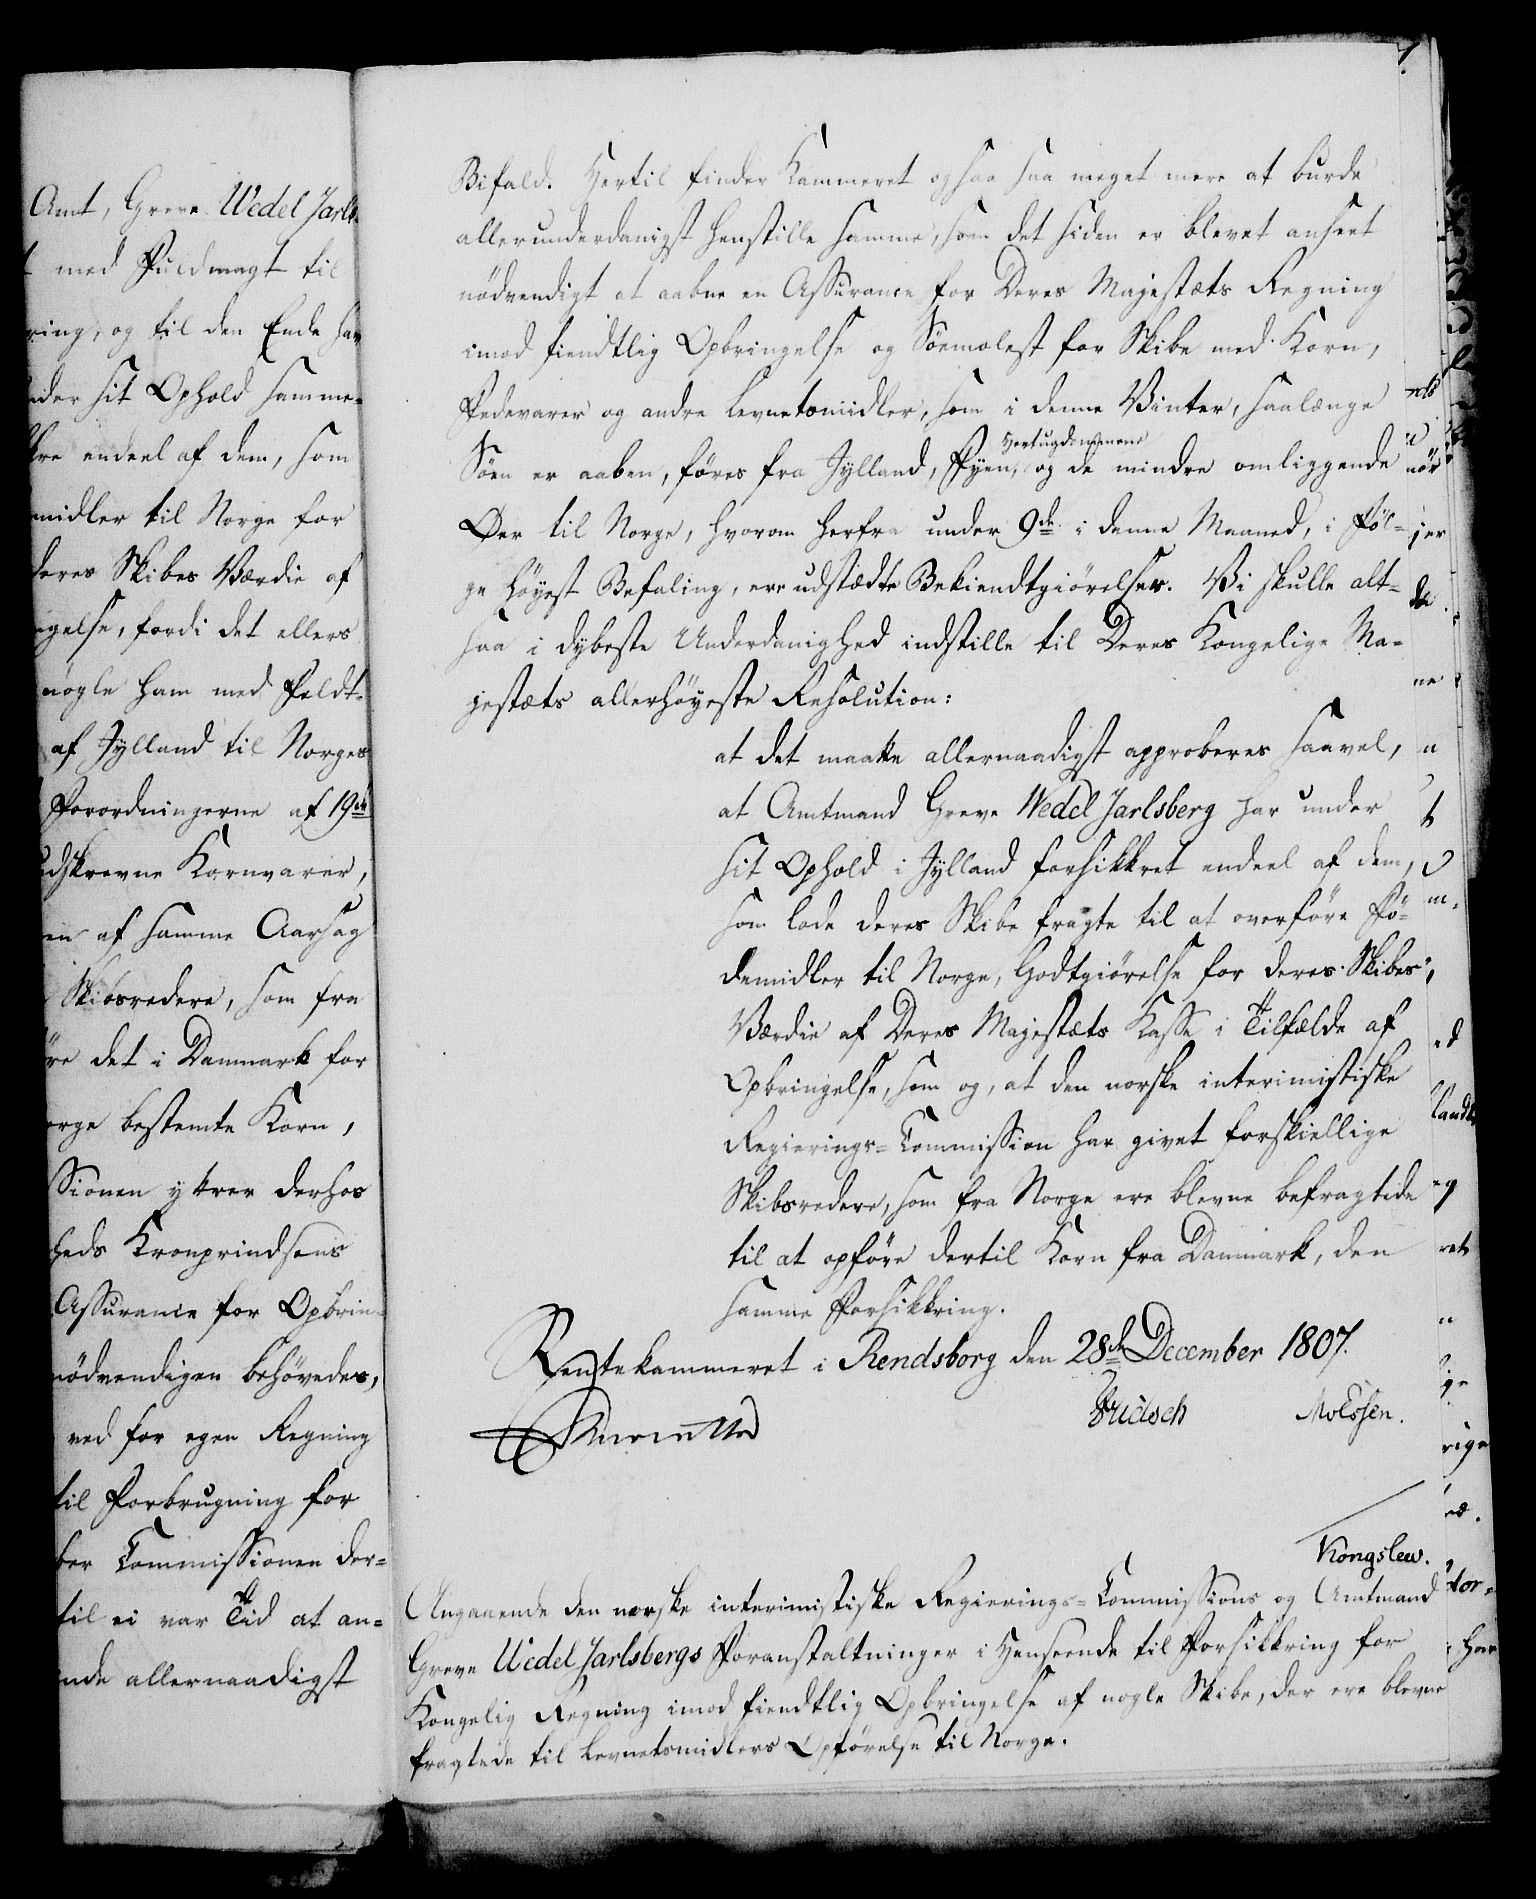 Amt, Greve Wedel Jarls-
med Fuldmagt til
ring, og til den Ende har
under sit Ophold samme-
endeel af dem, som
midler til Norge for
deres Skibes Værdie af
ngelse, fordi det ellers
nogle ham med Feldt-
af Jylland til Norges
Forordningerne af 19de
udskrevne Kornvarer,
en af samme Aarsag
Skibsredere, som fra
øre det i Danmark for
orge bestemte Korn,
ssionen yttrer derhos
heds Kronprindsens
Assurance for Opbrin-
nödvendigen behövedes,
ved for egen Regning
til Forbrugning for
ber Commissionen der-
til ei var Tid at an-
nde allernaadigst
Bifald. Hertil finder Kammeret ogsaa saa meget mere at burde
allerunderdanigst henstille samme, som det siden er blevet anseet
nödvendigt at aabne en Assurance for Deres Majestæts Regning
imod fiendtlig Opbringelse og Söemolest for Skibe med Korn,
Fedevarer og andre Levnetsmidler, som i denne Vinter, saalænge
Hertugdommene
Söen er aaben, föres fra Jylland, Fyen, og de mindre omliggende
Øer til Norge, hvorom herfra under 9de i denne Maaned, i Föl-
ge höyest Befaling, ere udstædte Bekiendtgiörelser. Vi skulle alt-
saa i dybeste Underdanighed indstille til Deres Kongelige Ma-
jestæts allerhöyeste Resolution:
at det maatte allernaadigst approberes saavel,
at Amtmand Greve Wedel Jarlsberg har under
sit Ophold i Jylland forsikkret endeel af dem,
som lode deres Skibe fragte til at overföre Fö-
demidler til Norge, Godtgiörelse for deres Skibes
Værdie af Deres Majestæts Kasse i Tilfælde af
Opbringelse, som og, at den norske interimistiske
Regierings-Commission har givet forskiellige
Skibsredere, som fra Norge ere blevne befragtede
til at opföre dertil Korn fra Danmark, den
samme Forsikkring.
Rentekammeret i Rendsborg den 28de December 1807.
Fridsch Moessen.
Kongslew.
Angaaende den norske interimistiske Regierings-Commissions og Amtmand
Greve Wedel Jarlsbergs Foranstaltninger i Henseende til Forsikkring for
Kongelig Regning imod fiendtlig Opbringelse af nogle Skibe, der ere blevne
fragtede til Levnetsmidlers Opförelse til Norge.